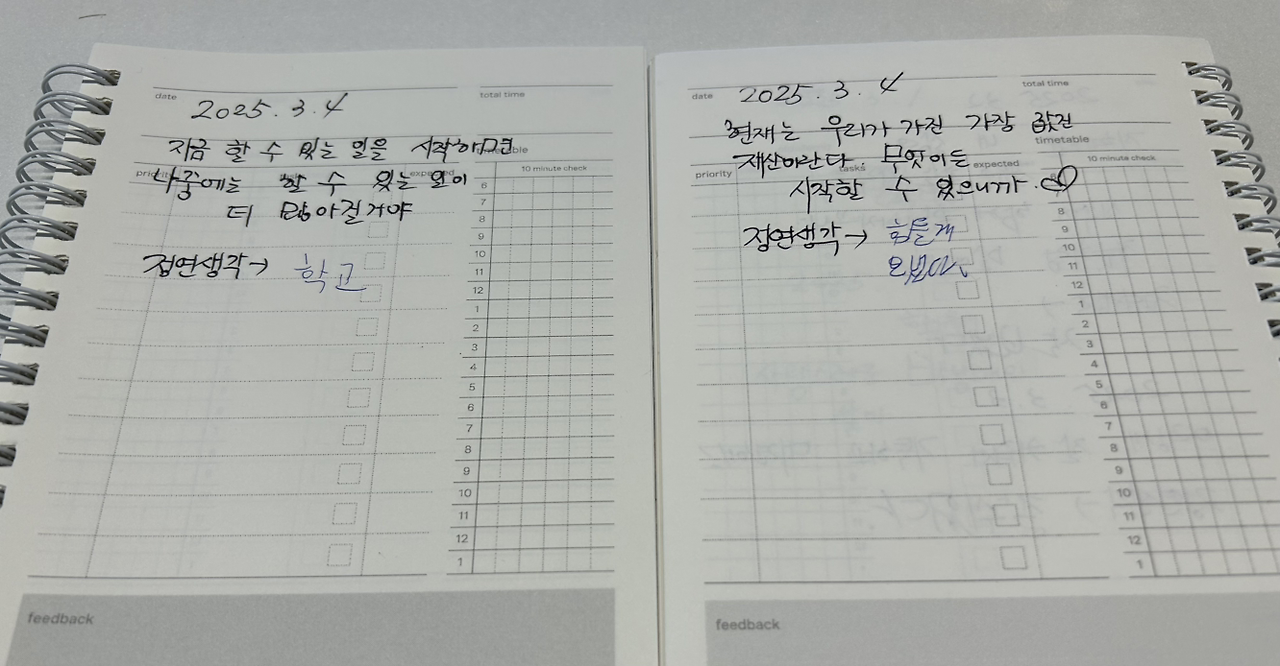 date 2025.3.4 total time
지금 할 수 있는 일을 시작하면
timetable
priority expected 10 minute check
나중에는 할 수 있는 일이
더 많아질거야
정연생각→ 학교
6
7
8
9
10
11
12
1
2
3
4
5
6
7
8
9
10
11
12
1
feedback
date 2025.3.4 total time
현재는 우리가 가진 가장 값진
timetable
재산이란다. 무엇이든
priority tasks expected 10 minute check
시작할 수 있으니까.
정연생각→ 힘들게
8
9
10
11
12
1
2
3
4
5
6
7
8
9
10
11
12
1
feedback